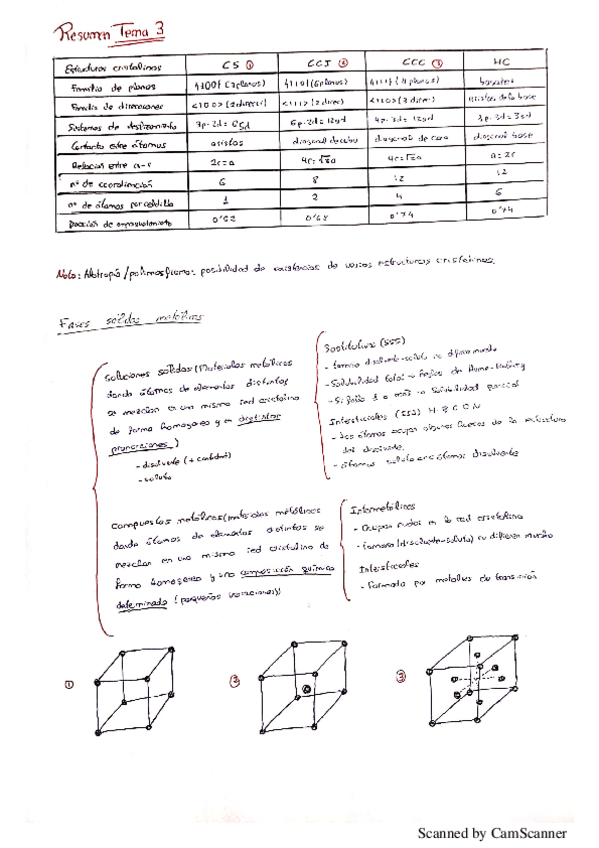 Resumen Tema 3
Estructuras cristalinas CS ① CCI ② CCC ③ HC
Familia de planos {100} (3 planos) {110} (6 planos) {111} (4 planos) basales
Familia de direcciones <100> (2 direcc) <111> (2 direc) <110> (3 direc)
Sistemas de deslizamiento 3p·2d = 6sd 6p·2d = 12sd 4p·3d = 12sd 1p·3d = 3sd
Contacto entre átomos aristas diagonal de cubo diagonal de cara diagonal base
Relación entre a-r 2r=a 4r=√3a 4r=√2a a=2r
nº de coordinación 6 8 12 12
nº de átomos por celdilla 1 2 4 6
Fracción de empaquetamiento 0'52 0'68 0'74 0'74
Nota: Alotropía/polimorfismo: posibilidad de existencias de varias estructuras cristalinas.
Fases sólidas metálicas
Soluciones sólidas (Materiales metálicos
donde átomos de elementos distintos
se mezclan en una misma red cristalina
de forma homogénea y en distintas
proporciones)
- disolvente (+ cantidad)
- soluto
Sustitutiva (SSS)
- tamaño disolvente-soluto no difiere mucho
- Solubilidad total → Reglas de Hume-Rothery
- Si falla 1 o más → Solubilidad parcial
Intersticiales (SSI) H B C O N
- Los átomos ocupan algunos huecos de la estructura
del disolvente.
- átomos soluto <<< átomos disolvente
Compuestos metálicos (materiales metálicos
donde átomos de elementos distintos se
mezclan en una misma red cristalina de
forma homogénea y una composición química
determinada (pequeñas variaciones))
Intermetálicos
- Ocupan nudos en la red cristalina
- tamaño (disolvente-soluto) no difieren mucho
Intersticiales
- Formada por metales de transición
①
②
③
Scanned by CamScanner